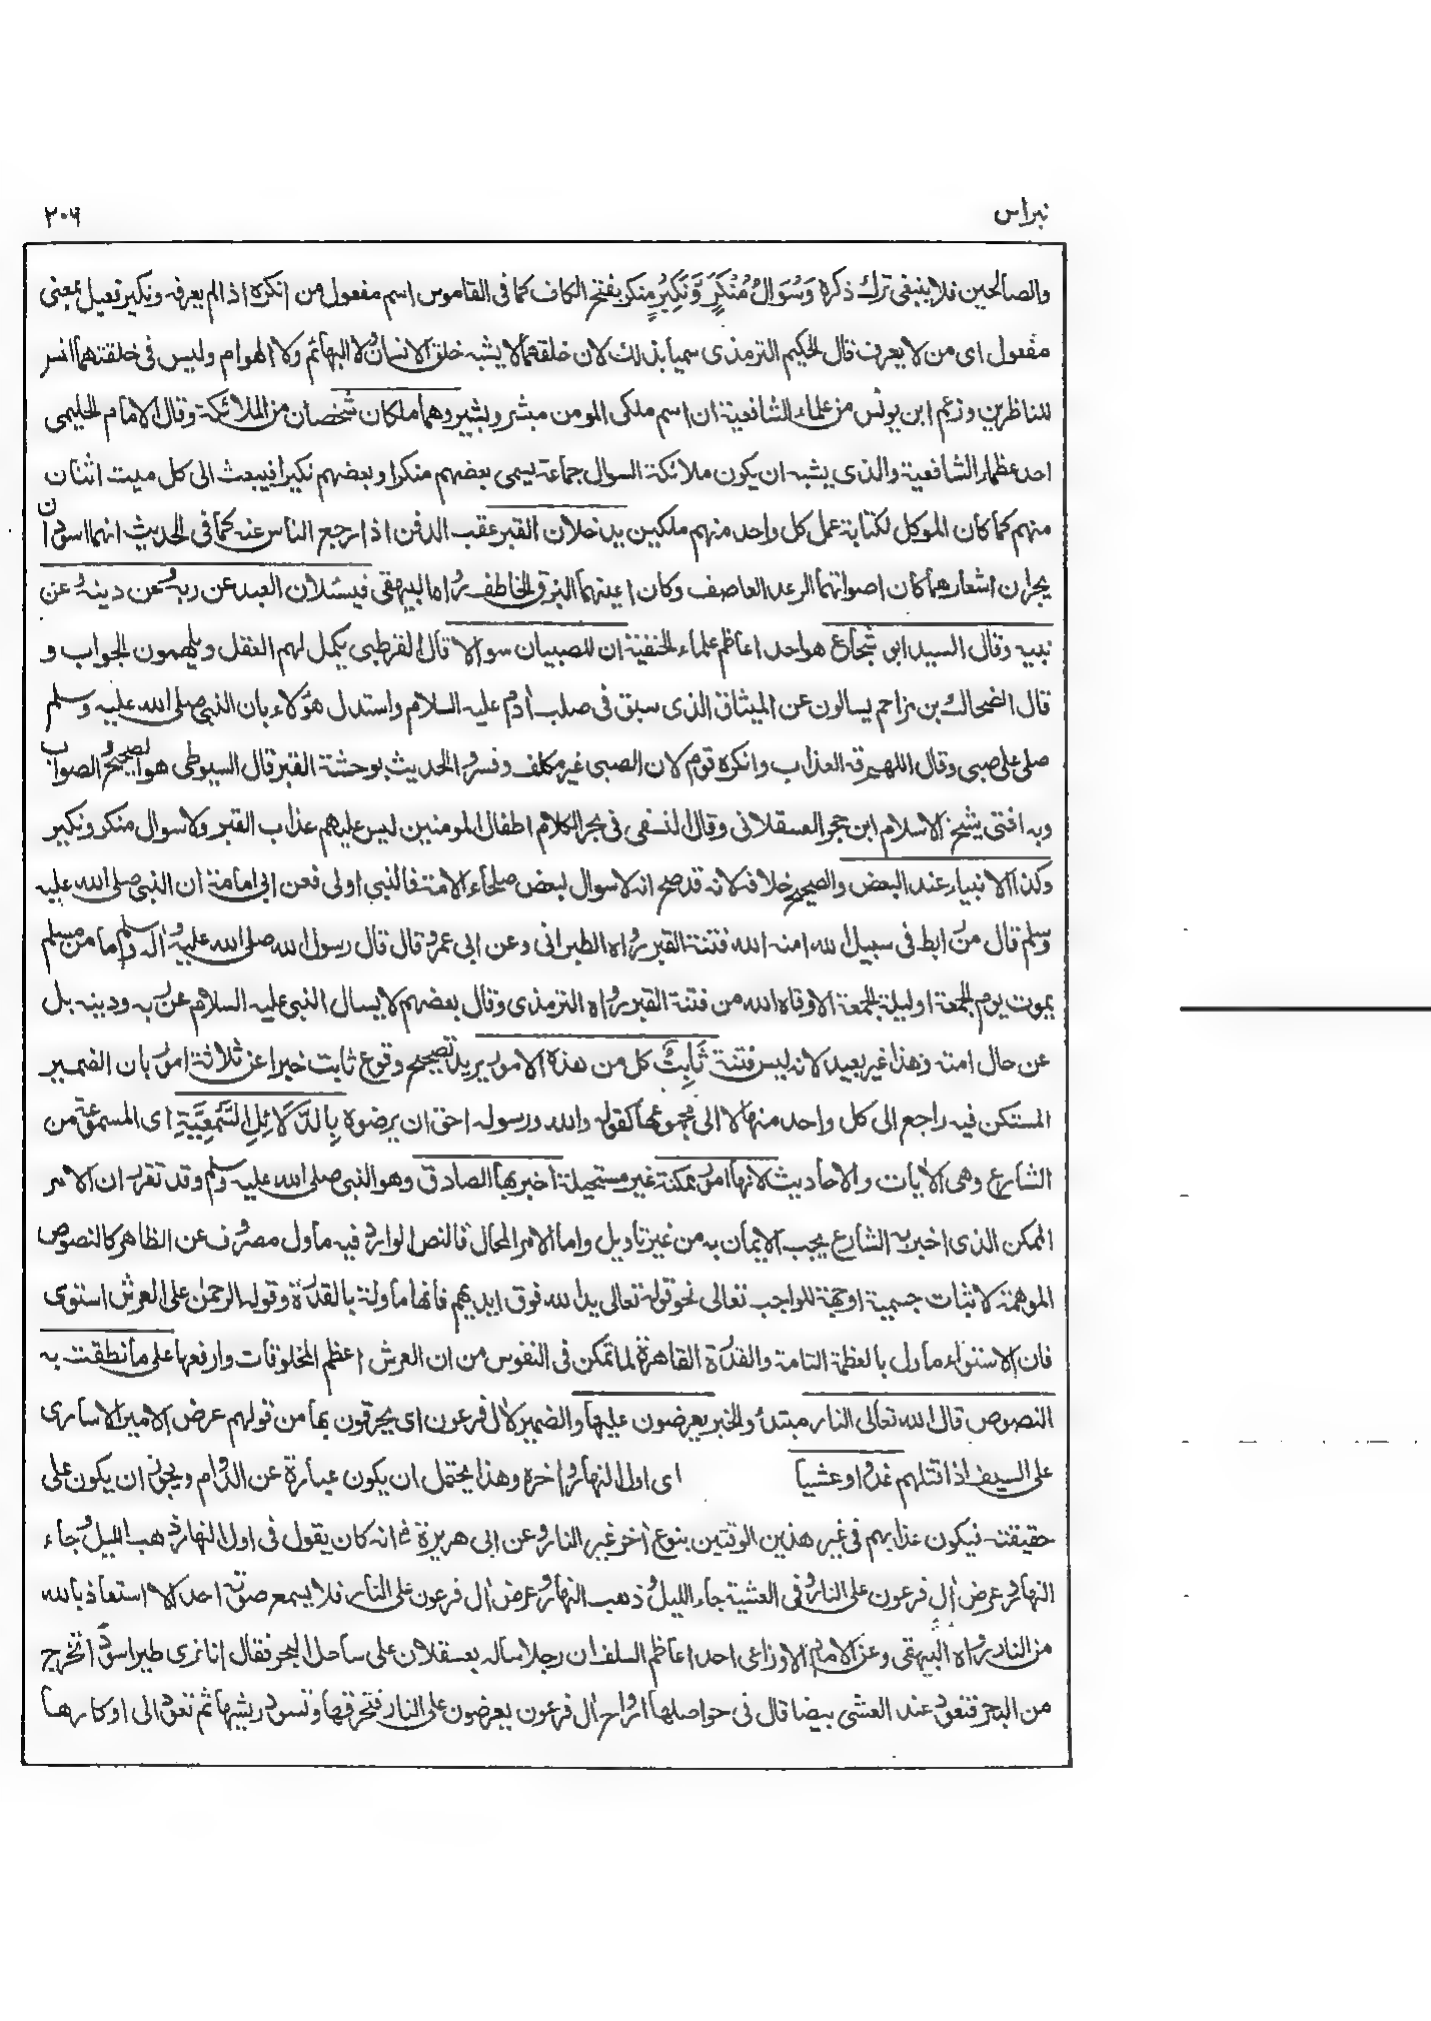 نبراس
٢٠٦
والصالحين فلا ينبغى ترك ذكره وَسُوَالُ مُنْكَرٍ وَّنَكِيْرٍ منكر بفتح الكاف كما فى القاموس اسم مفعول من انكره اذا لم يعرفه ونكير فعيل بمعنى
مفعول اى من لا يعرف قال الحكيم الترمذى سميا بذلك لان خلقهما لا يشبه خلق الانسان ولا البهائم ولا الهوام وليس فى خلقتهما انس
للناظرين وزعم ابن يونس من علماء الشافعية ان اسم ملكى المومن مبشر وبشير وهما ملكان شخصان من الملائكة وقال الامام الحليمى
احد عظماء الشافعية والذى يشبه ان يكون ملائكة السوال جماعة يسمى بعضهم منكرا وبعضهم نكيرا فيبعث الى كل ميت اثنان
منهم كما كان الموكل لكتابة عمل كل واحد منهم ملكين يدخلان القبر عقب الدفن اذا رجع الناس عنه كما فى الحديث انهما اسودان
يجران اشعارهما كان اصواتهما الرعد العاصف وكان اعينهما البرق الخاطف رواه البيهقى فيسئلان العبد عن ربه وعن دينه وعن
نبيه وقال السيد ابو شجاع هو احد اعاظم علماء الحنفية ان للصبيان سوالا قال القرطبى يكمل لهم العقل ويلهمون الجواب و
قال الضحاك بن مزاحم يسالون عن الميثاق الذى سبق فى صلب آدم عليه السلام واستدل هؤلاء بان النبى صلى الله عليه وسلم
صلى على صبى وقال اللهم قه العذاب وانكره قوم لان الصبى غير مكلف وفسروا الحديث بوحشة القبر قال السيوطى هو الصحيح والصواب
وبه افتى شيخ الاسلام ابن حجر العسقلانى وقال النسفى فى بحر الكلام اطفال المومنين ليس عليهم عذاب القبر ولا سوال منكر ونكير
وكذا الانبياء عند البعض والصحيح خلافه لانه قد صح انه لا سوال لبعض صلحاء الامة فالنبى اولى فعن ابى امامة ان النبى صلى الله عليه
وسلم قال من رابط فى سبيل الله امنه الله فتنة القبر رواه الطبرانى وعن ابى عمرو قال قال رسول الله صلى الله عليه وآله وسلم ما من مسلم
يموت يوم الجمعة او ليلة الجمعة الا وقاه الله من فتنة القبر رواه الترمذى وقال بعضهم لا يسال النبى عليه السلام عن ربه ودينه بل
عن حال امته وهذا غير بعيد لانه ليس فتنة ثَابِتٌ كل من هذه الامور يريد تصحيح وقوع ثابت خبرا عن ثلاثة امور بان الضمير
المستكن فيه راجع الى كل واحد منها لا الى مجموعها كقوله والله ورسوله احق ان يرضوه بِالدَّلَائِلِ السَّمْعِيَّةِ اى المسموعة من
الشارع وهى الآيات والاحاديث لانها امور ممكنة غير مستحيلة اخبر بها الصادق وهو النبى صلى الله عليه وسلم وقد تقرر ان الامر
الممكن الذى اخبر به الشارع يجب الايمان به من غير تاويل واما الامر المحال فالنص الوارد فيه ماول مصروف عن الظاهر كالنصوص
الموهمة لاثبات جسمية او جهة للواجب تعالى نحو قوله تعالى يد الله فوق ايديهم فانها ماولة بالقدرة وقوله الرحمٰن على العرش استوى
فان الاستواء ماول بالعظمة التامة والقدرة القاهرة لما تمكن فى النفوس من ان العرش اعظم المخلوقات وارفعها على ما نطقت به
النصوص قال الله تعالى النار مبتدء والخبر يعرضون عليها والضمير لآل فرعون اى يحرقون بها من قولهم عرض الامير الاسارى
على السيف اذا قتلهم غدوا وعشيا اى اول النهار وآخره وهذا يحتمل ان يكون عبارة عن الدوام ويجوز ان يكون على
حقيقته فيكون عذابهم فى غير هذين الوقتين بنوع آخر غير النار وعن ابى هريرة رض انه كان يقول فى اول النهار ذهب الليل وجاء
النهار وعرض آل فرعون على النار وفى العشية جاء الليل وذهب النهار وعرض آل فرعون على النار فلا يسمع صوته احد الا استعاذ بالله
من النار رواه البيهقى وعن الامام الاوزاعى احد اعاظم السلف ان رجلا ساله بعسقلان على ساحل البحر فقال انا نرى طيرا سودا تخرج
من البحر فتغدو عند العشى بيضا قال فى حواصلها ارواح آل فرعون يعرضون على النار فتحرقها وتسود ريشها ثم تعود الى اوكارها